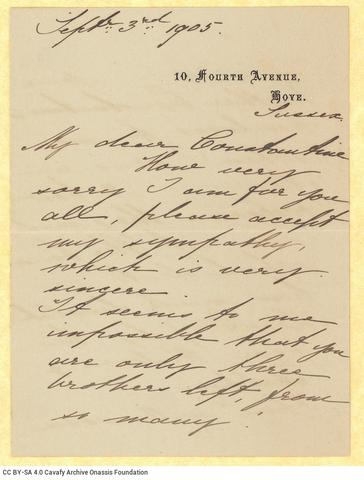 Septr. 3rd 1905.
10, Fourth Avenue,
Hove.
Sussex.
My dear Constantine
How very
sorry I am for you
all, please accept
my sympathy,
which is very
sincere.
It seems to me
impossible that you
are only three
brothers left, from
so many!
CC BY-SA 4.0 Cavafy Archive Onassis Foundation